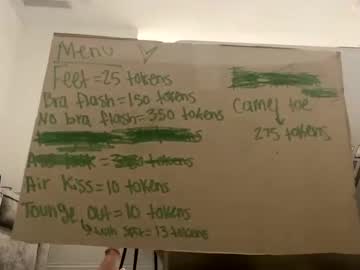 Menu
Feet = 25 tokens
Bra flash = 150 tokens
No bra flash = 350 tokens
Air Kiss = 10 tokens
Tounge out = 10 tokens
with spit = 13 tokens
Camel toe
275 tokens